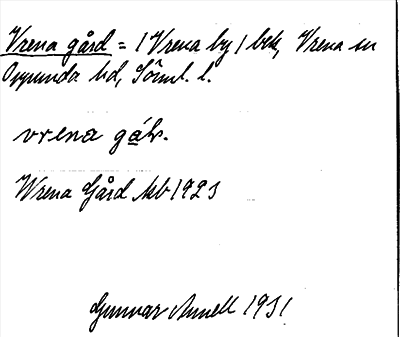 Vrena gård = / Vrena by / bek, Vrena sn
Oppunda hd, Söml. l.
vrena gá̱ḷv.
Wrena Gård Jkb 1923
Gunnar Annell 1931